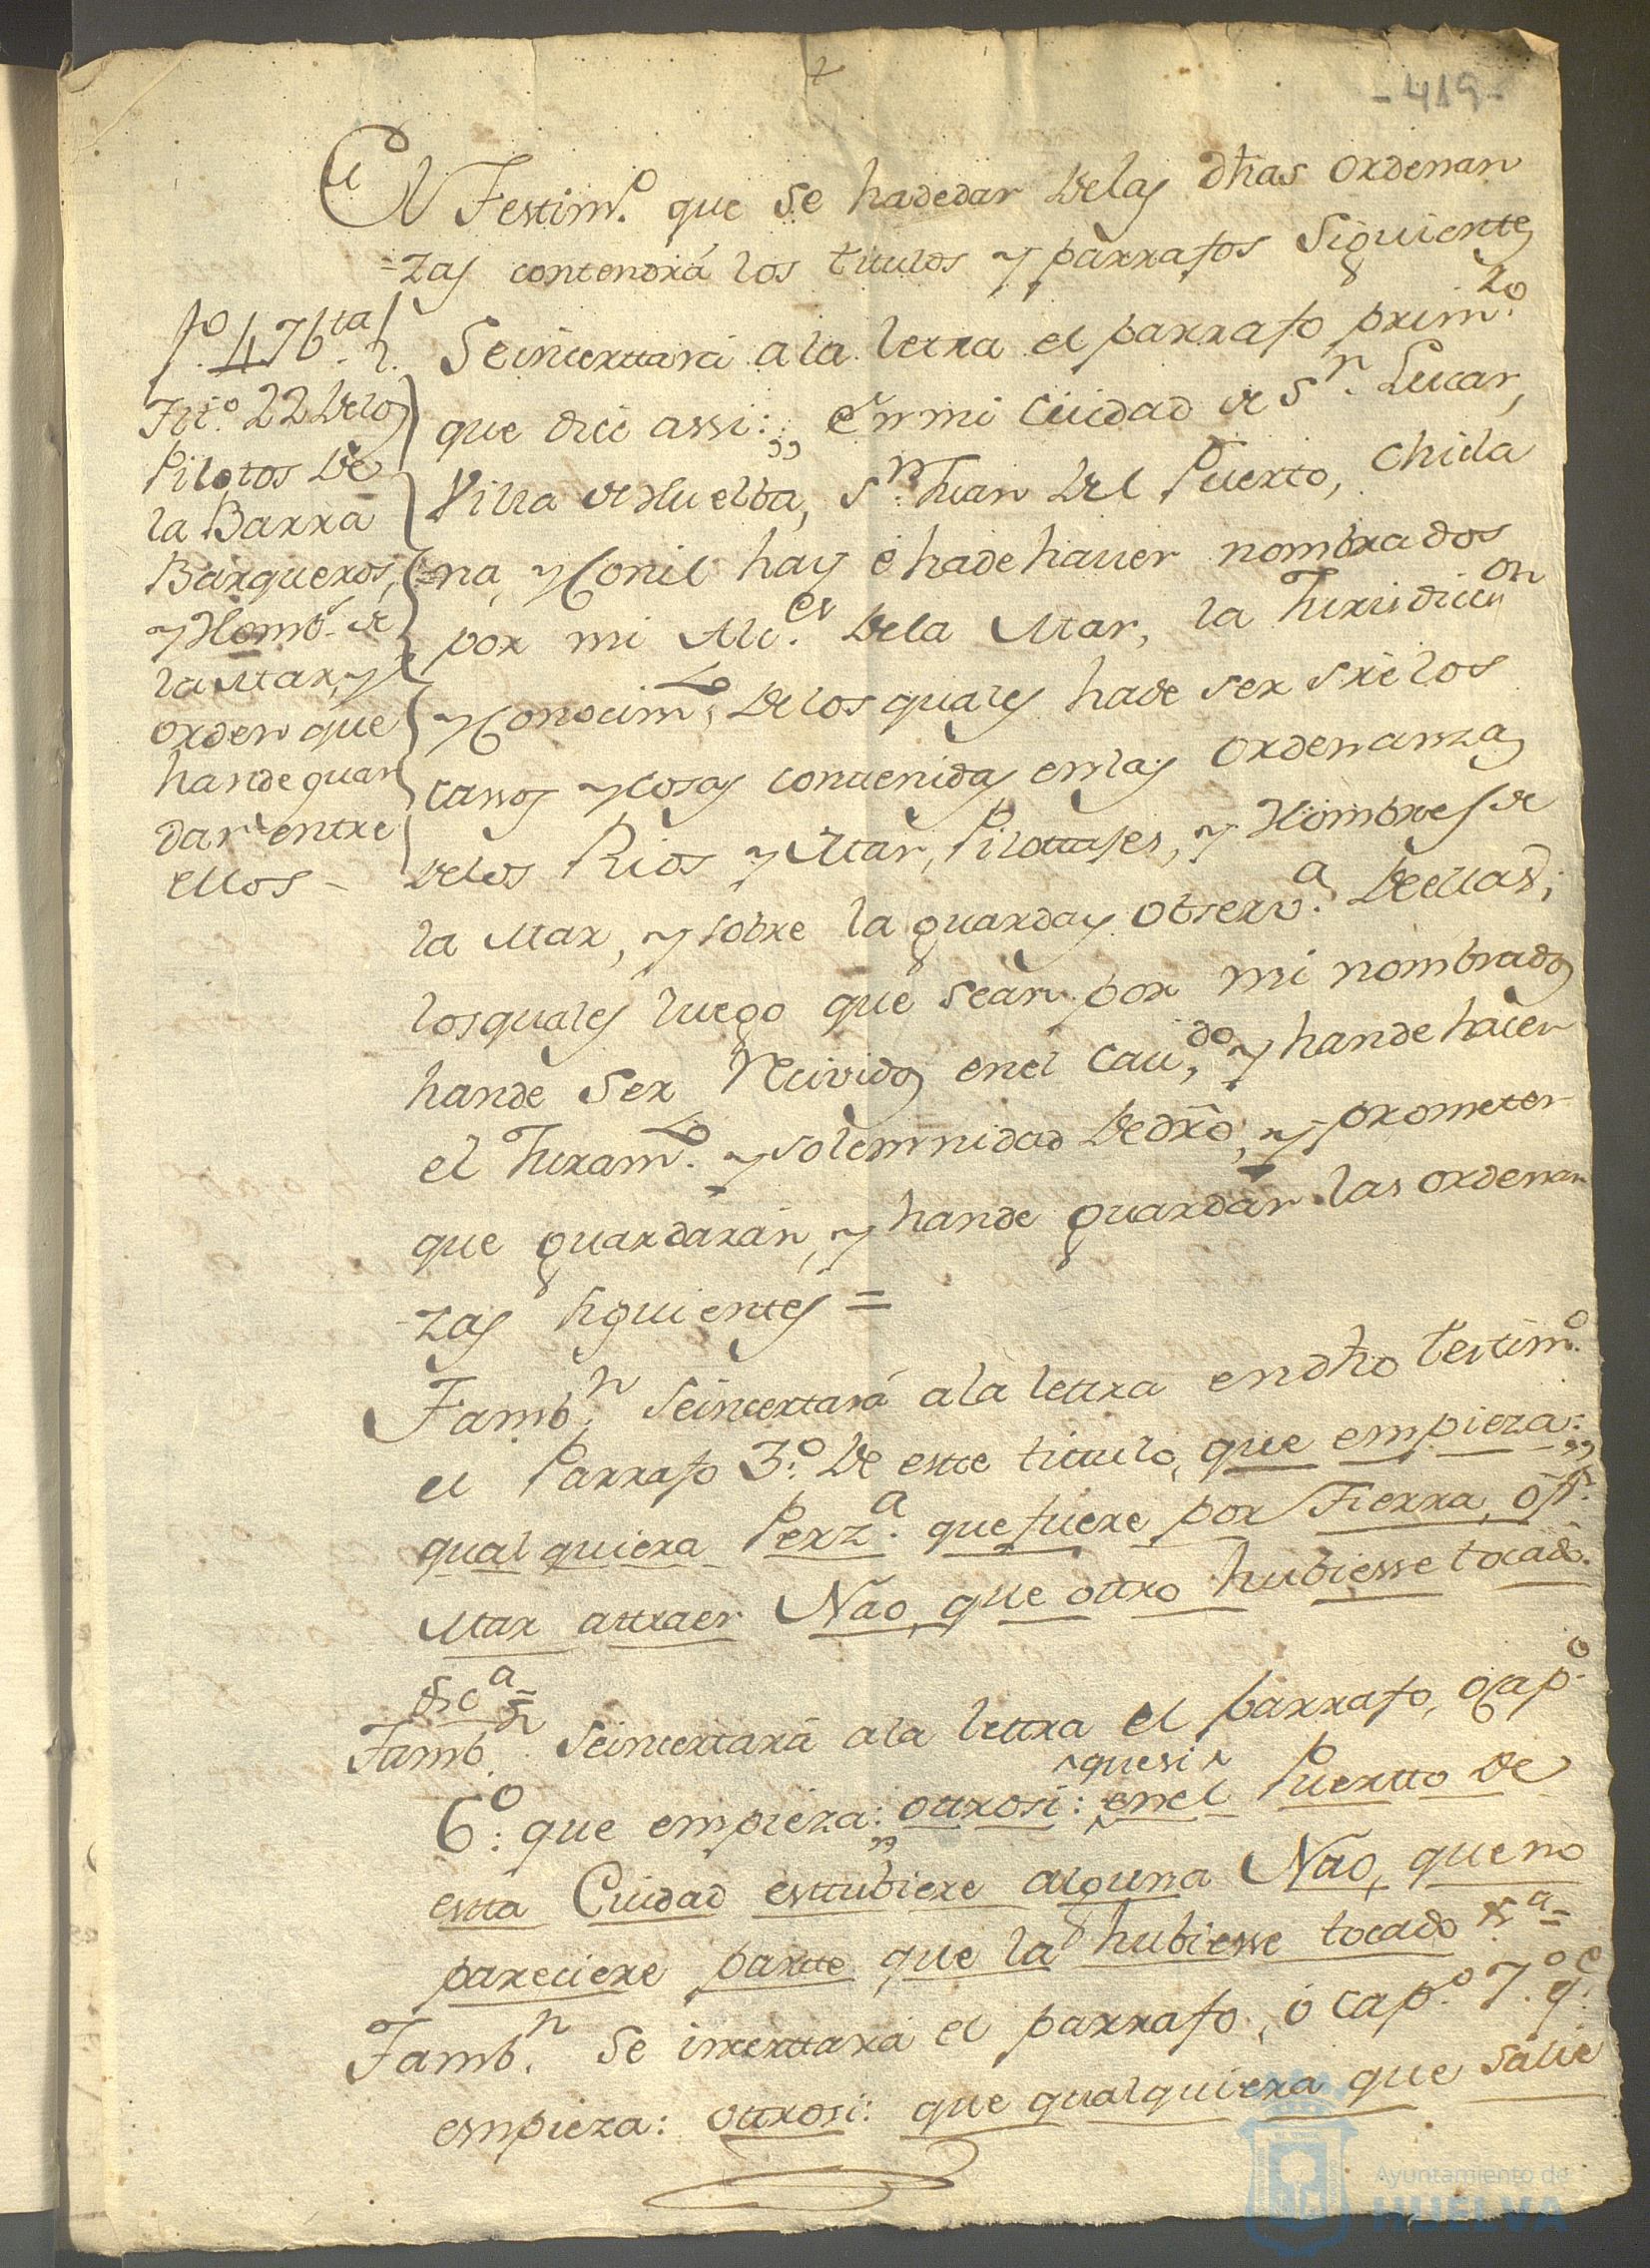 -419-
El Testim.º que se hadedar Delas dhas ordenan
=zas contendrá los titulos y parrafos siguientes
f.º 476 ta
Tit.º 22 Delos
Pilotos De
la Barra
Barqueros,
y Homb.s de
la Mar, y
orden que
hande guar
dar entre
ellos -
Seincerttará ala letra el parrafo prim.ro
que dice assi:,, en mi Ciudad de S.n Lucar,
Villa de Huelba, S.n Juan Del Puerto, Chicla
=na, y Conil hay é hade hauer nombrados
por mi Alc.es Dela Mar, la Jurisdicion
y Conocim.to Delos quales hade ser s̃re los
cassos y cosas conuenidas enlas ordenanzas
Delos Rios y Mar, Pilottajes, y Hombres de
la Mar, y sobre la guarda y observ.a Deellas;
losquales luego que sean por mi nombrados
hande ser Recividos enel Cau.do y hande hacer
el Juram.to y solemnidad Dedr̃o, y prometer
que guardarán, y hande guardar las ordenan
=zas siguientes =
Tamb.n Seincertará ala letra endho testim.º
el Parrafo 3.º De este titulo, que empieza:,,
qualquiera Perz.a que fuere por Tierra, ó p.r
Mar attraer Nao, que otro hubiesse tocado.
&c.a =
Tamb.n Seincertará ala lettra el parrafo, o cap.º
6.º: que empieza:,, ottrosi: ^quesi^ enel Puertto De
esta Ciudad esttubiere alguna Nao, que no
pareciere partte que la hubiesse tocado &.a =
Tamb.n Se incerttará el parrafo, ó cap.º 7.º q.e
empieza: ottrosi: que qualquiera que salie
Ayuntamiento de
HUELVA